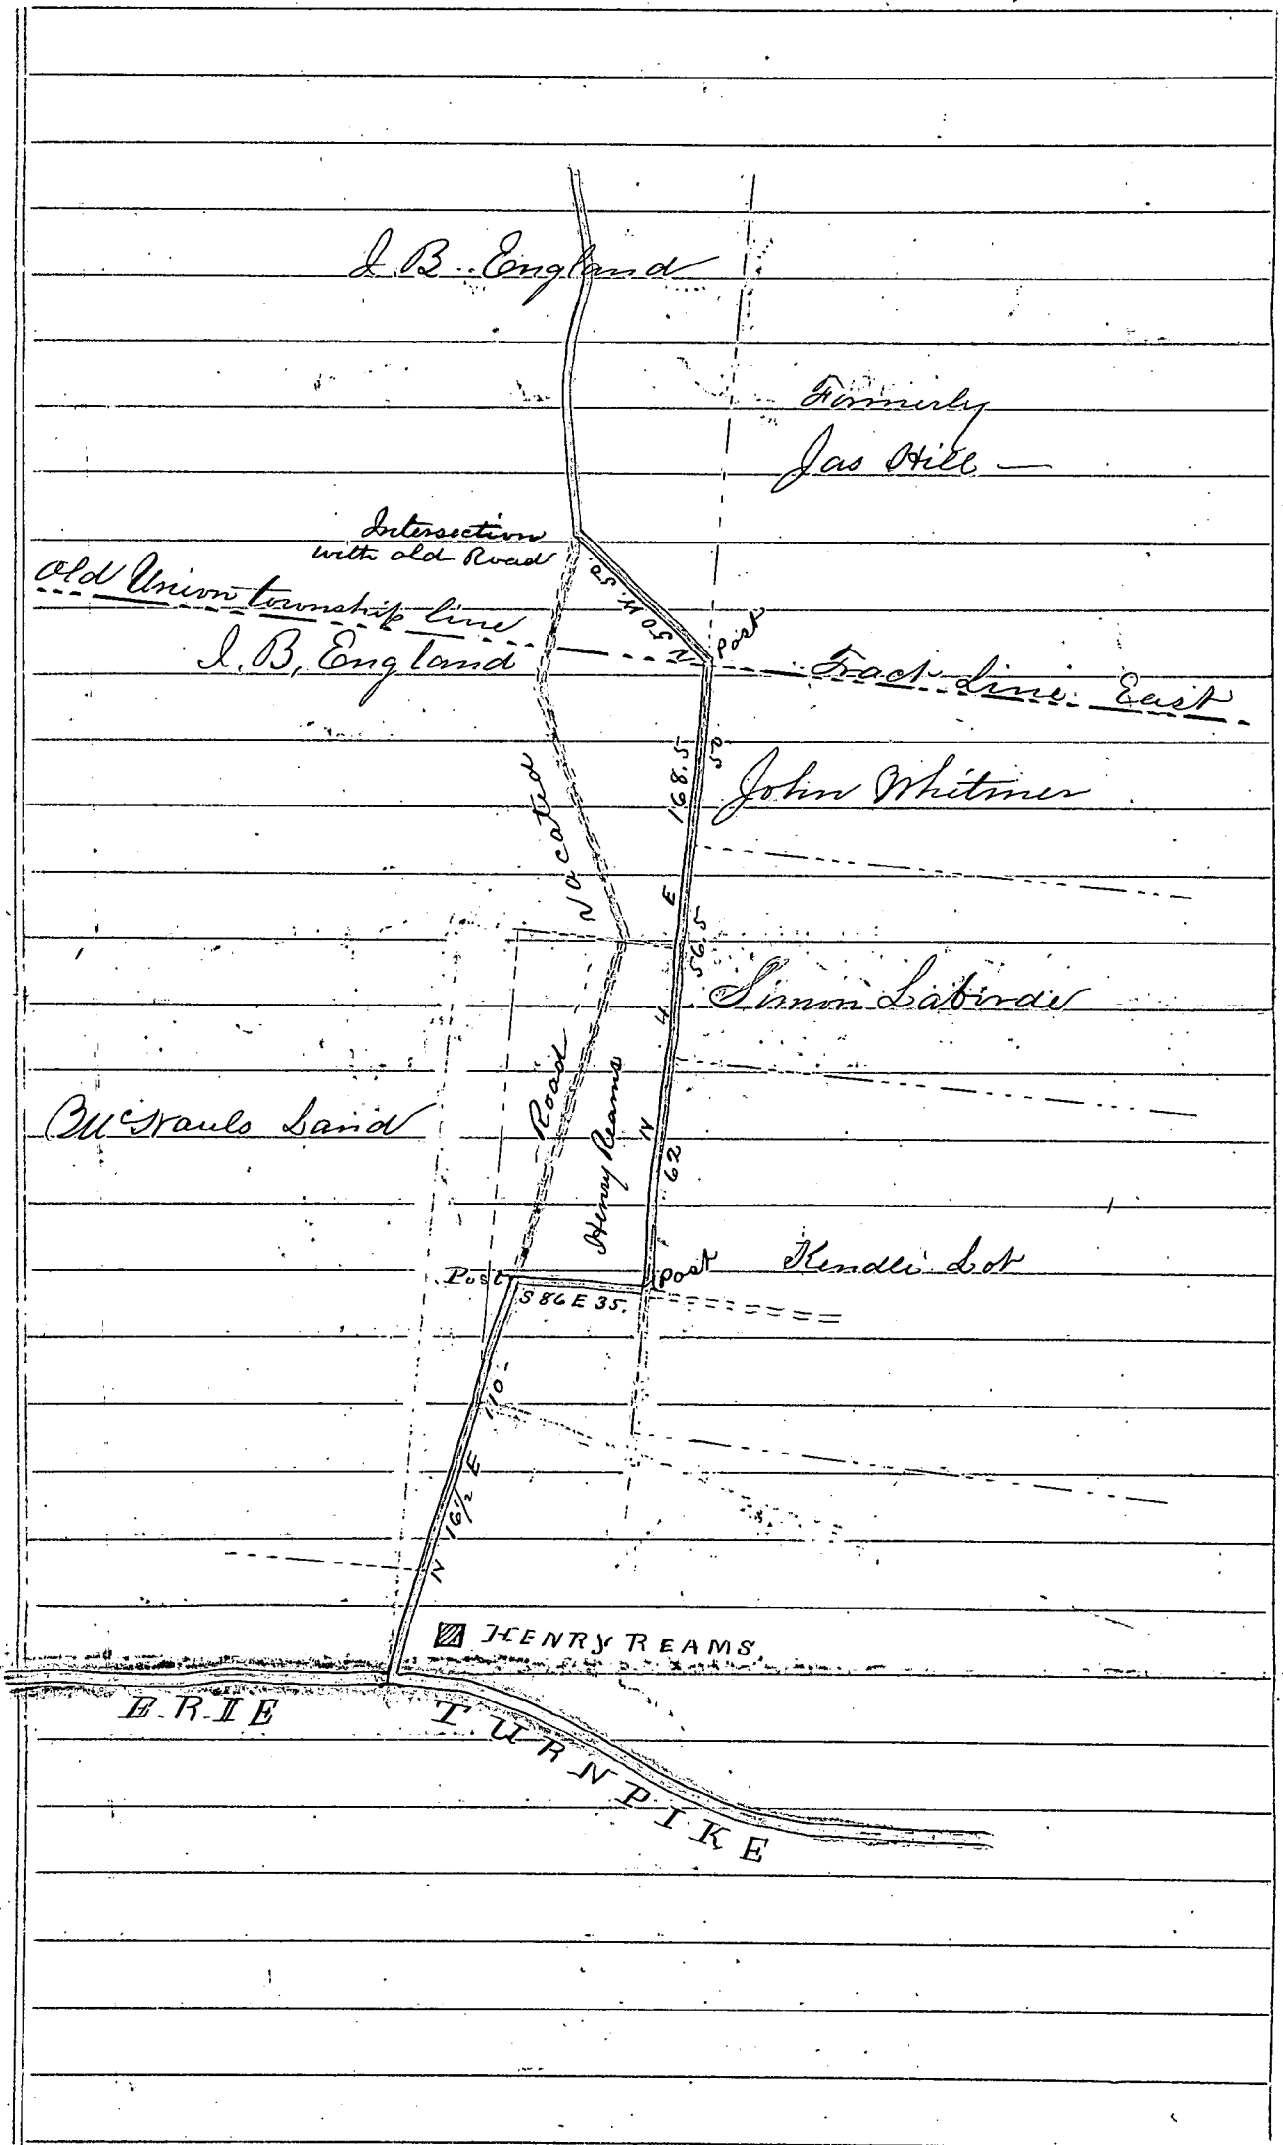 I. B. England
Formerly
Jas Hill —
Intersection
with old Road
Old Union township line
I. B, England
N 50 W. 50.
Post
Tract Line East
168.5
50
John Whitmer
Vacated
E
56.5
Simon Labirde
4
Road
Henry Reams
Land
N
62
Post
Post
Lot
S 86 E 35.
110
N 16 1/2 E
HENRY REAMS.
ERIE TURNPIKE